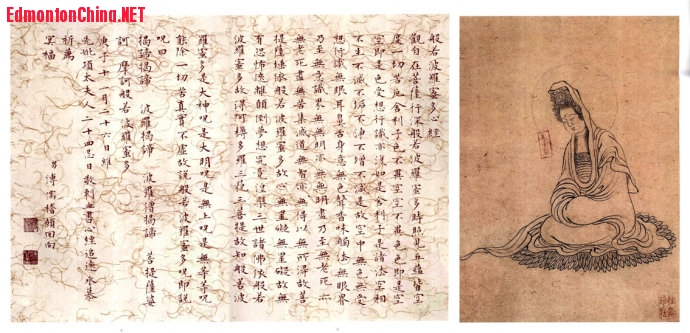 EdmontonChina.NET
般若波羅蜜多心經
觀自在菩薩行深般若波羅蜜多時照見五蘊皆空
度一切苦厄舍利子色不異空空不異色色即是空
空即是色受想行識亦復如是舍利子是諸法空相
不生不滅不垢不淨不增不減是故空中無色無受
想行識無眼耳鼻舌身意無色聲香味觸法無眼界
乃至無意識界無無明亦無無明盡乃至無老死亦
無老死盡無苦集滅道無智亦無得以無所得故菩
提薩埵依般若波羅蜜多故心無罣礙無罣礙故無
有恐怖遠離顛倒夢想究竟涅槃三世諸佛依般若
波羅蜜多故得阿耨多羅三藐三菩提故知般若波
羅蜜多是大神呪是大明呪是無上呪是無等等呪
能除一切苦真實不虛故說般若波羅蜜多呪即說
呪曰
揭諦揭諦 波羅揭諦 波羅僧揭諦 菩提薩婆
訶 摩訶般若波羅蜜多
庚子十一月二十六日維
先妣項太夫人二十四忌日敬刺血書心經追遠永慕
祈薦
冥福
男溥儒稽顙回向